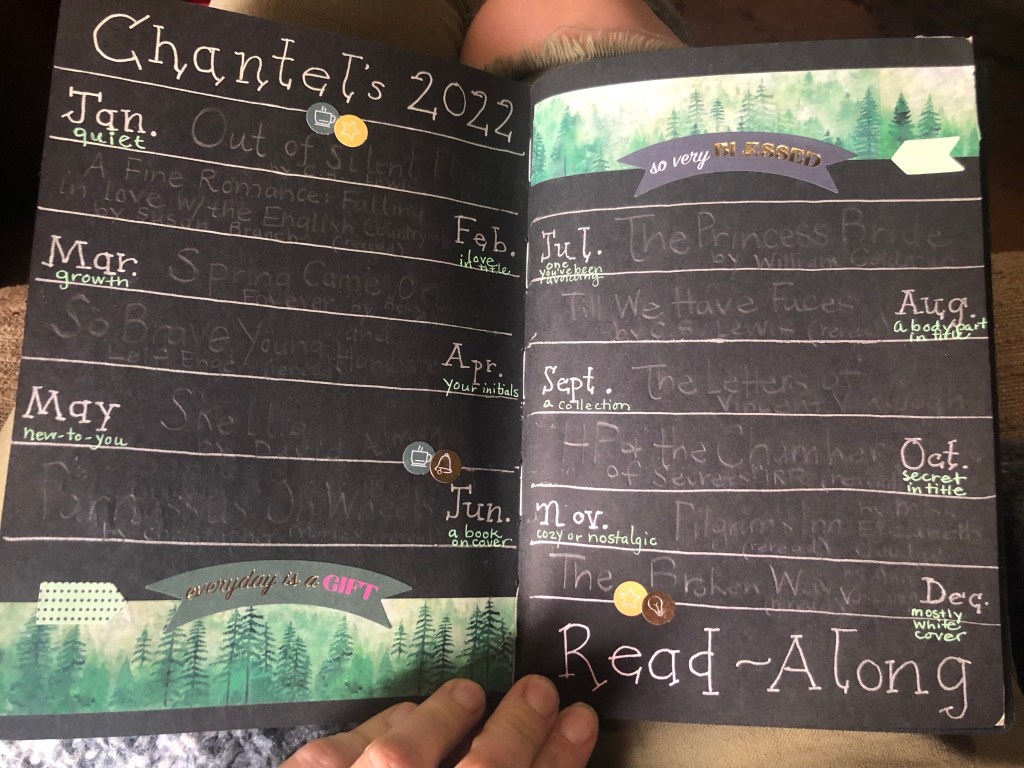 Chantel's 2022
Jan.
quiet
Out of Silent
A Fine Romance: Falling
in Love w/ the English Country
by Susan Branch (reread)
Feb.
love
in title
Mar.
growth
Spring Came On
Forever
So Brave, Young, and
Handsome
Apr.
your initials
May
new-to-you
Jun.
a book
on cover
Parnassus On Wheels
everyday is a GIFT
so very BLESSED
Jul.
one
you've been
avoiding
The Princess Bride
by William Goldman
Till We Have Faces
by C.S. Lewis (reread)
Aug.
a body part
in title
Sept.
a collection
The Letters of
Vincent
HP & the Chamber
of Secrets
Oct.
secret
in title
Nov.
cozy or nostalgic
Pilgrim's Inn
(reread)
The Broken Way
Dec.
mostly
white
cover
Read-Along